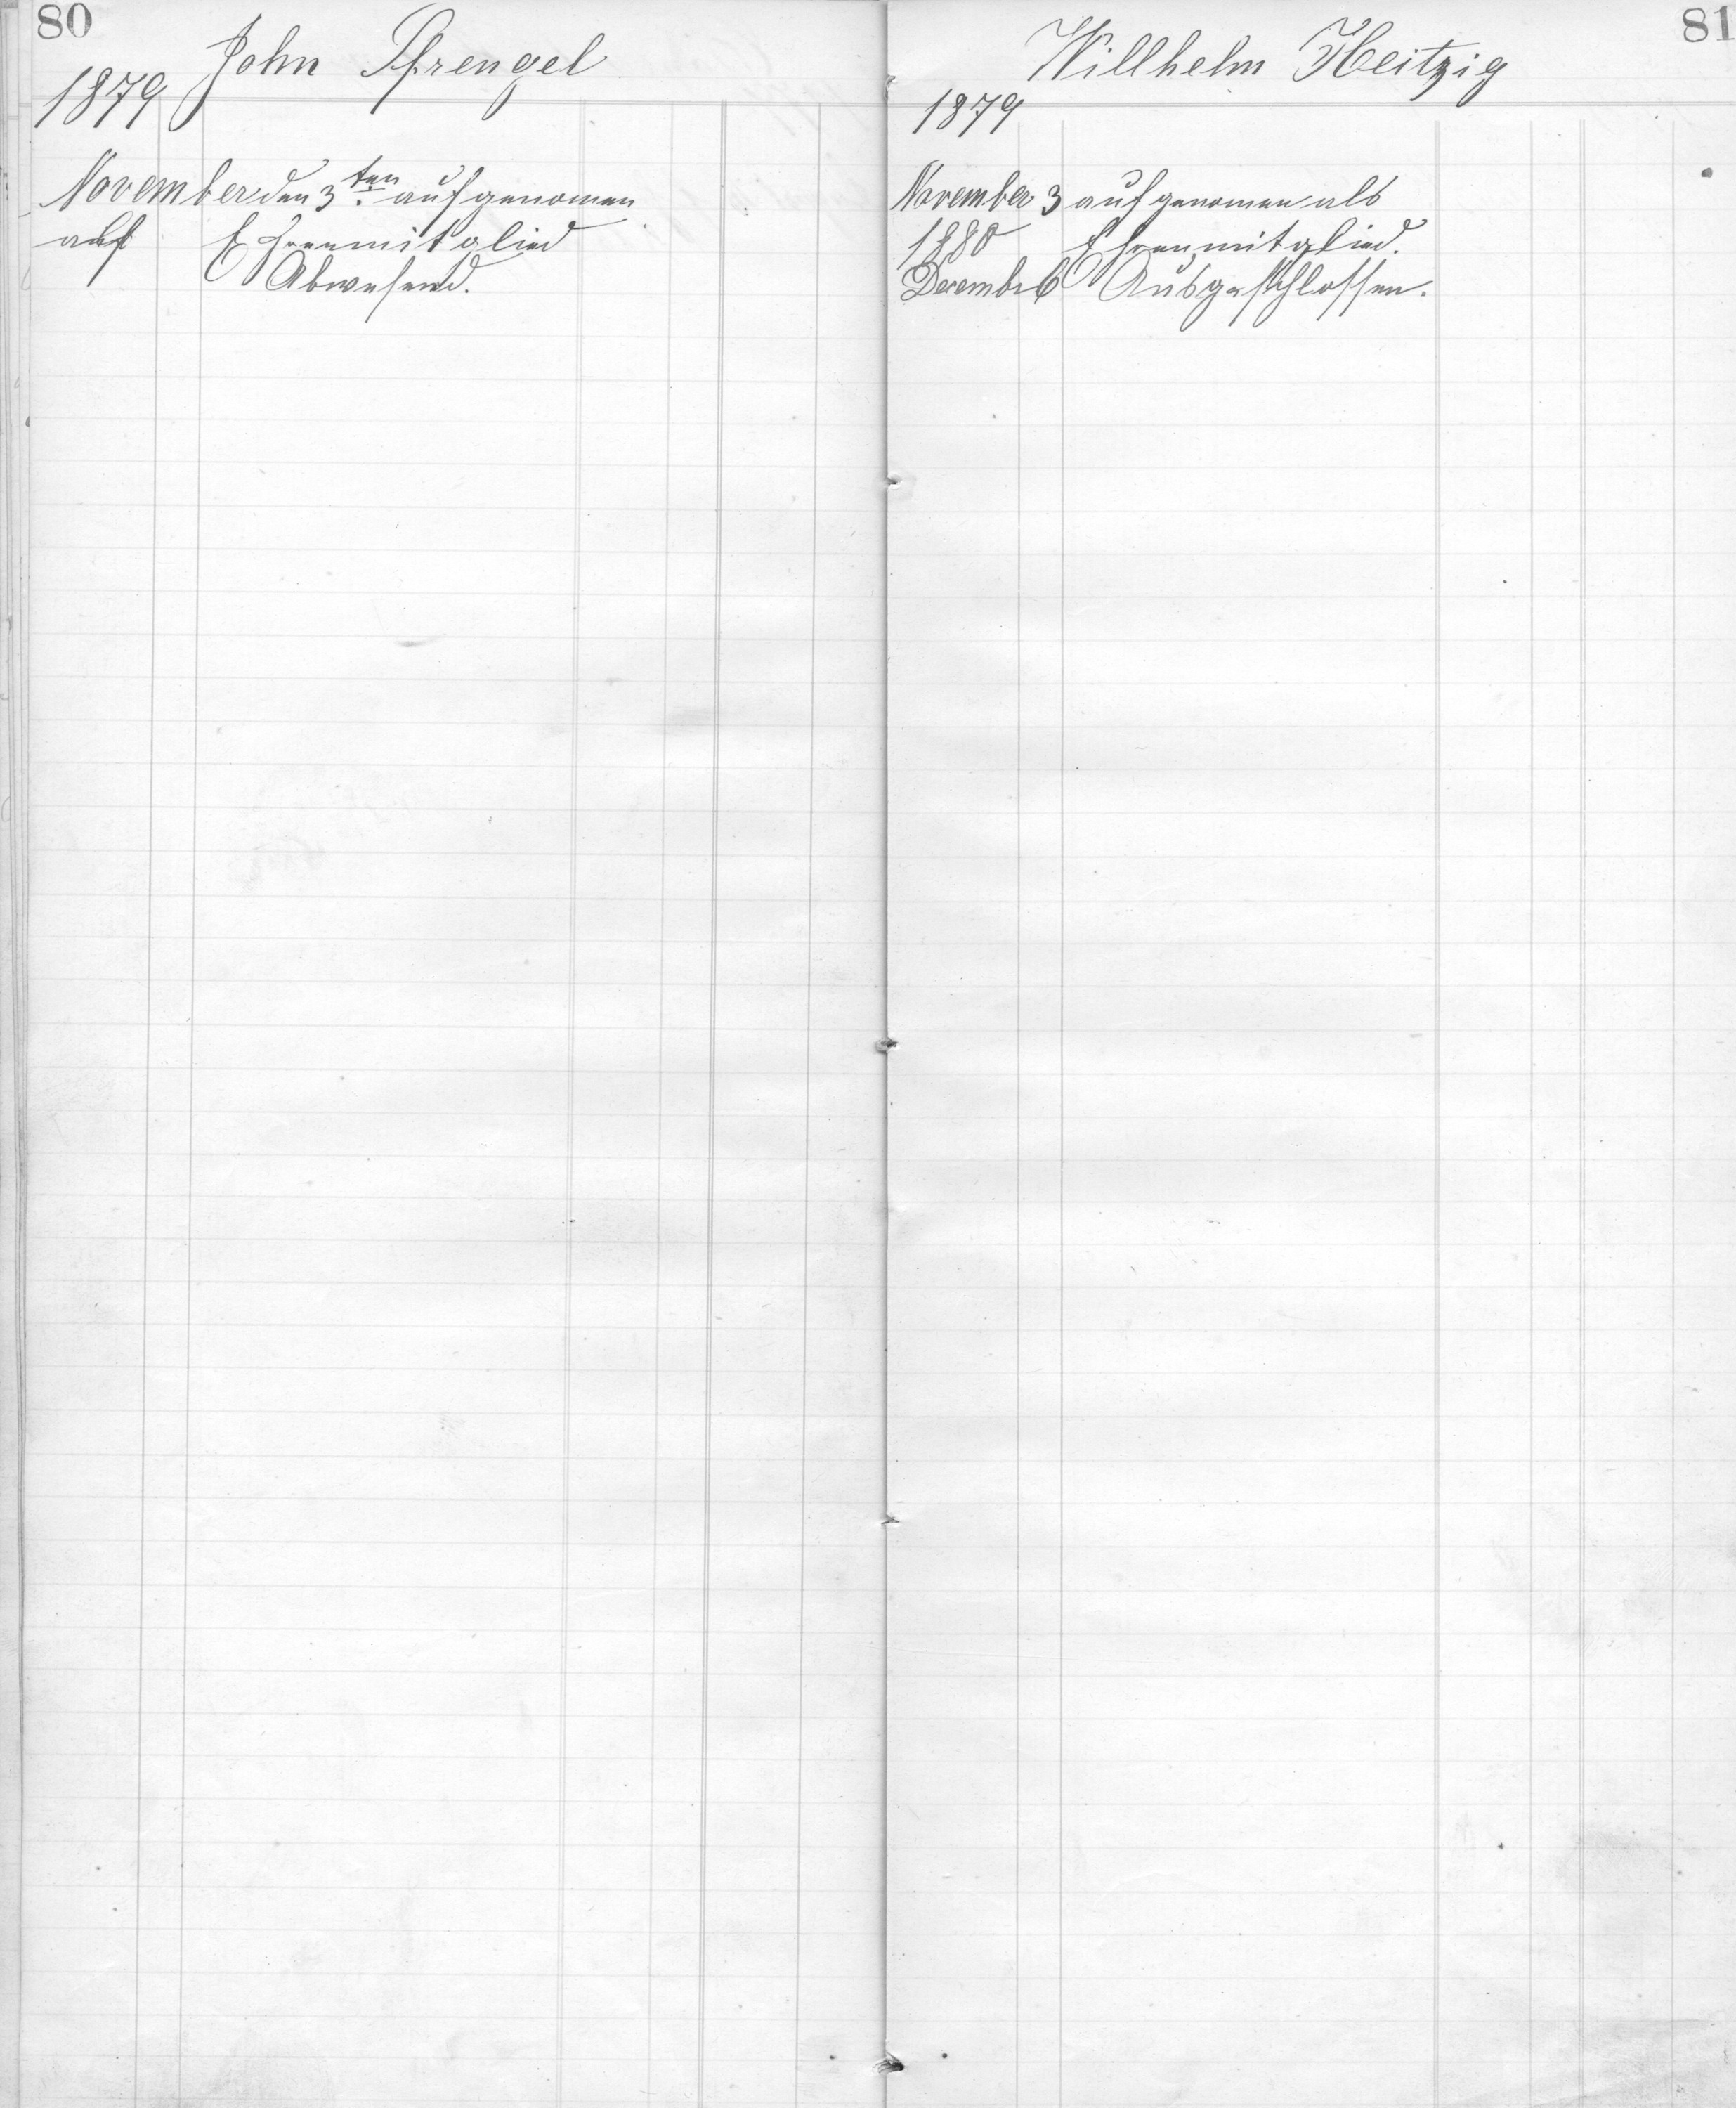 80
John Sprengel
1879
November den 3ten. aufgenomen
als Ehrenmitglied
Abwesend.
81
Willhelm Heitzig
1879
November 3 aufgenomen als
1880 Ehrenmitglied.
December 6 Ausgeschlossen.